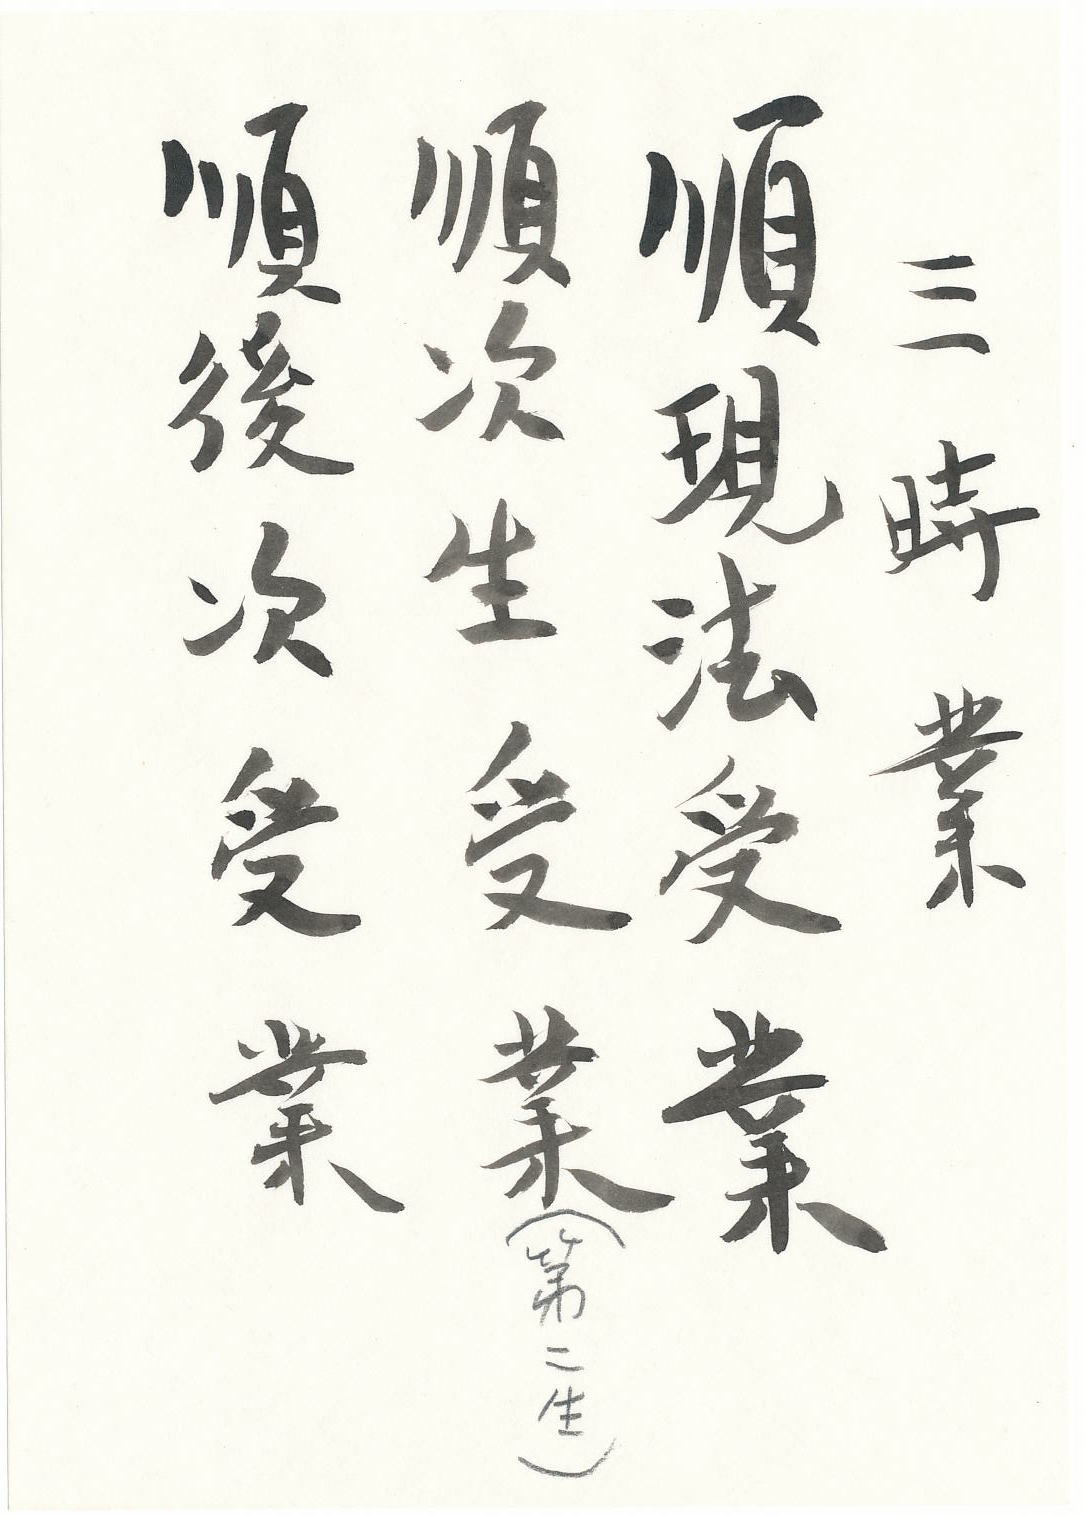 三時業
順現法受業
順次生受業（第二生）
順後次受業